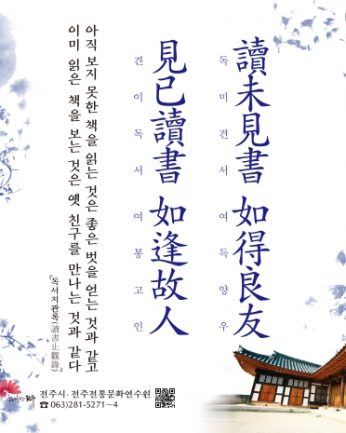 讀未見書 如得良友
독미견서 여득양우
見已讀書 如逢故人
견이독서 여봉고인
아직 보지 못한 책을 읽는 것은 좋은 벗을 얻는 것과 같고
이미 읽은 책을 보는 것은 옛 친구를 만나는 것과 같다
『독서지관록(讀書止觀錄)』
전주시· 전주전통문화연수원
☎ 063)281-5271~4